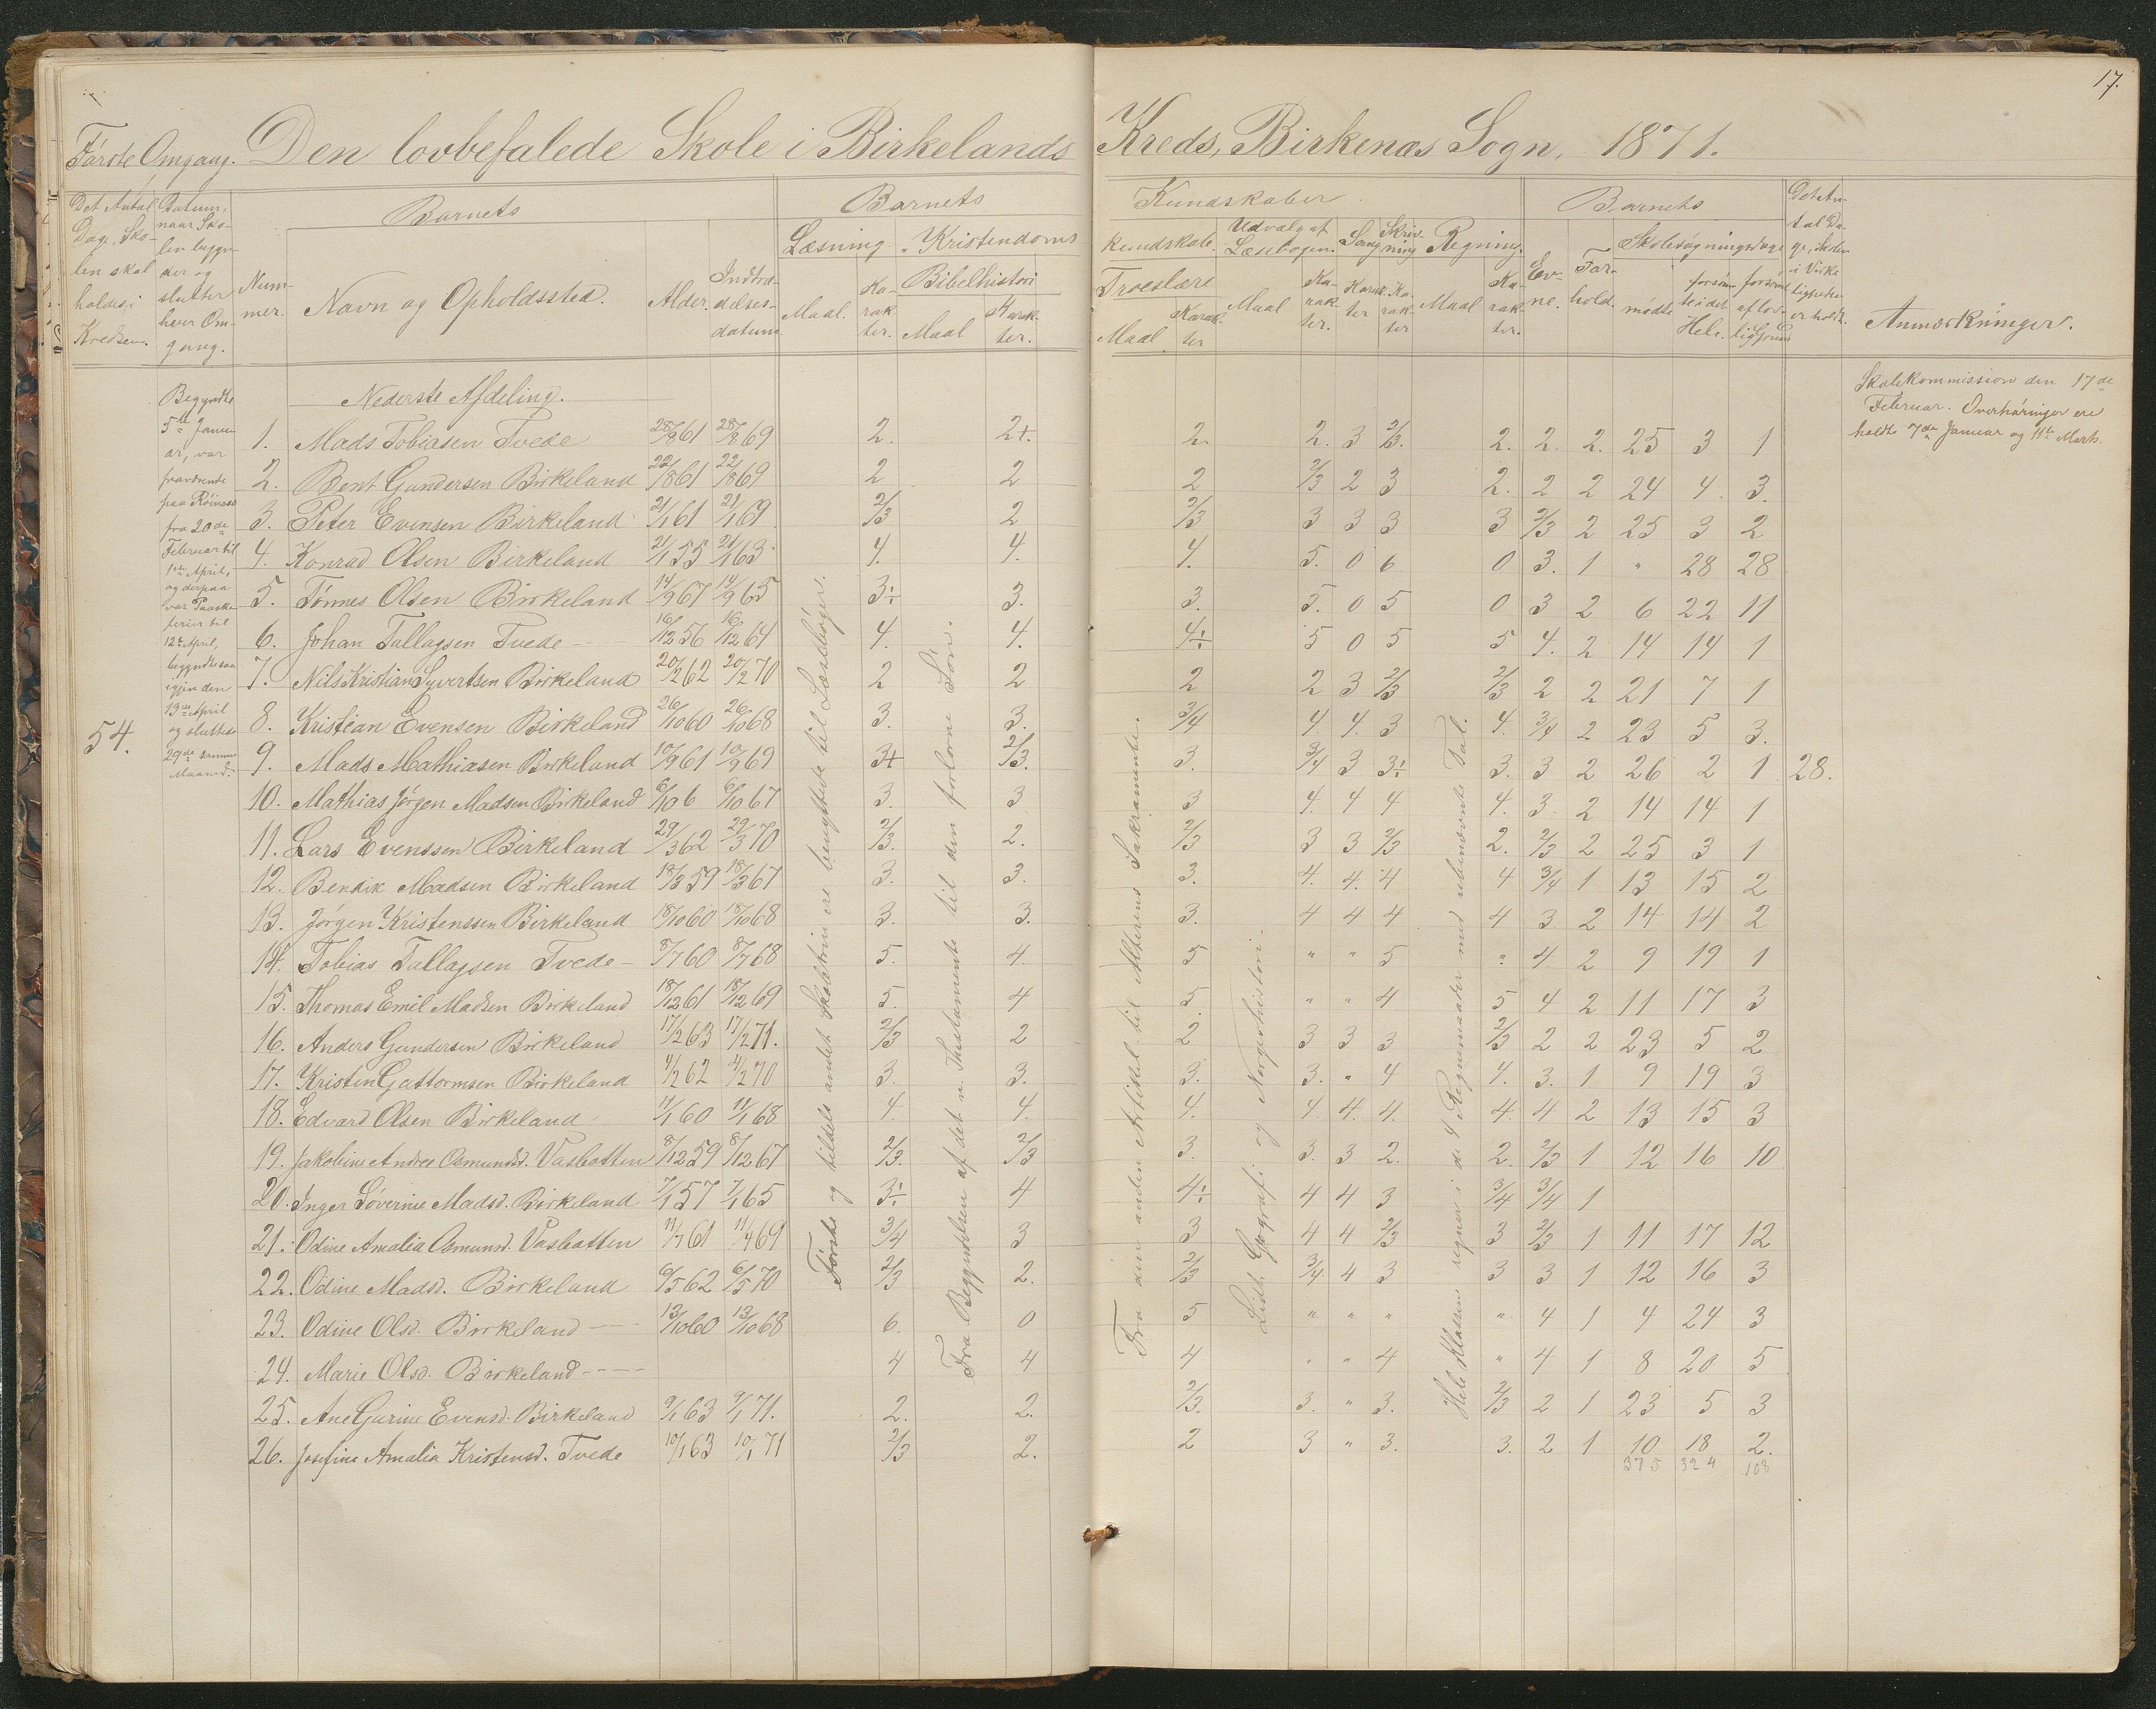 17.
Første Omgang. Den lovbefalede Skole i Birkelands Kreds, Birkenæs Sogn, 1871.
Det Antal Dage, Skolen skal holdes i Kredsen.
Datum, naar Skolen begynder og slutter hver Omgang.
Barnets
Nummer.
Navn og Opholdssted.
Alder.
Indtrædelsesdatum
Barnets Kundskaber
Læsning
Maal.
Karakter.
Kristendomskundskab.
Bibelhistori
Maal
Karakter.
Troeslære
Maal
Karakter
Udvalg af Læsebogen.
Maal
Karakter.
Sang
Karakter
Skrivning
Karakter
Regning.
Maal
Karakter.
Barnets
Evne.
Forhold.
Skolesøgningsdage
mødte
forsømte i det Hele.
forsømt af lovlig Grund
Det Antal Dage, Skolen i Virkeligheden er holdt.
Anmærkninger.
54.
Begyndte
5te Januar, var
fraværende
paa Røinaas
fra 20de
Februar til
1ste April,
og derpaa
var Paaske
ferier til
12te April,
begyndte saa
igjen den
13de April
og sluttede
29de samme
Maaned.
Skolekommission den 17de
Februar. Overhøringer ere
holdte 7de Januar og 11te Marts.
Nederste Afdeling.
1. Mads Tobiasen Tvede 28/8 61 28/8 69 2. 2+. 2. 2. 3 2/3. 2. 2. 2. 25 3 1
2. Bent Gundersen Birkeland 22/1 861 22/1 869 2 2 2 2/3 2 3 2. 2 2 24 4. 3.
3. Peter Evensen Birkeland 21/1 61 21/1 69 2/3 2 2/3 3 3 3 3 2/3 2 25 3 2
4. Konrad Olsen Birkeland 21/1 55 21/1 63 4. 4. 4. 5. 0 6 0 3. 1 " 28 28
5. Tønnes Olsen Birkeland 14/9 67 14/9 65 3÷ 3. 3. 5. 0 5 0 3 2 6 22 11
6. Johan Tallagsen Tvede 16/12 56 16/12 64 4. 4. 4÷ 5 0 5 5 4. 2 14 14 1
7. Nils Kristian Syvertsen Birkeland 20/2 62 20/2 70 2 2 2 2 3 2/3 2/3 2 2 21 7 1
8. Kristian Evensen Birkeland 26/10 60 26/10 68 3. 3. 3/4 4. 4. 3 4. 3/4 2 23 5 3.
9. Mads Mathiasen Birkeland 10/9 61 10/9 69 3+ 2/3. 3. 3/4 3 3÷ 3. 3 2 26 2 1 28.
10. Mathias Jørgen Madsen Birkeland 6/10 6 6/10 67 3. 3 3 4. 4 4 4. 3. 2 14 14 1
11. Lars Evenssen Birkeland 29/3 62 29/3 70 2/3. 2. 2/3 3 3 2/3 2. 2/3 2 25 3 1
12. Bendik Madsen Birkeland 18/3 59 18/3 67 3. 3. 3. 4. 4. 4 4 3/4 1 13 15 2
13. Jørgen Kristenssen Birkeland 18/10 60 18/10 68 3. 3. 3. 4 4 4 4 3 2 14 14 2
14. Tobias Tallagsen Tvede 8/7 60 8/7 68 5. 4 5 " " 5 " 4 2 9 19 1
15. Thomas Emil Madsen Birkeland 18/12 61 18/12 69 5. 4 5 " " 4 5 4 2 11 17 3
16. Anders Gundersen Birkeland 17/2 63 17/2 71. 2/3 2 2 3 3 3 2/3 2 2 23 5 2
17. Kristen Guttormsen Birkeland 4/2 62 4/2 70 3. 3. 3. 3. " 4 4. 3. 1 9 19 3
18. Edvard Olsen Birkeland 11/1 60 11/1 68 4. 4. 4. 4. 4. 4. 4. 4 2 13 15 3
19. Jakobine Andree Osmundsd. Vasbotten 8/12 59 8/12 67 2/3. 2/3 3. 3. 3 2. 2. 2/3 1 12 16 10
20. Inger Søverine Madsd. Birkeland 7/1 57 7/1 65 3÷ 4 4÷ 4 4 3 3/4 3/4 1
21. Odine Amalia Osmund. Vasbotten 11/7 61 11/4 69 3/4 3 3 4 4 2/3 3 2/3 1 11 17 12
22. Odine Madsd. Birkeland 6/5 62 6/5 70 2/3 2. 2/3 3/4 4 3 3 3 1 12 16 3
23. Odine Olsd. Birkeland 13/10 60 13/10 68 6. 0 5 " " " " 4 1 4 24 3
24. Marie Olsd. Birkeland 4 4 4 " " 4 " 4 1 8 20 5
25. Ane Gurine Evensd. Birkeland 9/1 63 9/1 71. 2. 2. 2/3. 3. " 3. 2/3 2 1 23 5 3
26. Josefine Amalia Kristensd. Tvede 10/1 63 10/1 71 2/3 2. 2 3 " 3. 3. 2 1 10 18 2.
375 324 108
Første og tildels andet Skoletrin ere benyttede til Læsebøger.
Fra Begyndelsen af det n. Thestamente til den forlorne Søn.
Fra den anden Artikel til Alterens Sakramente.
Lidt Geografi og Norgeshistori.
Hele Klassen regner i de 4 Regnemaader med ubenævnte Tal.